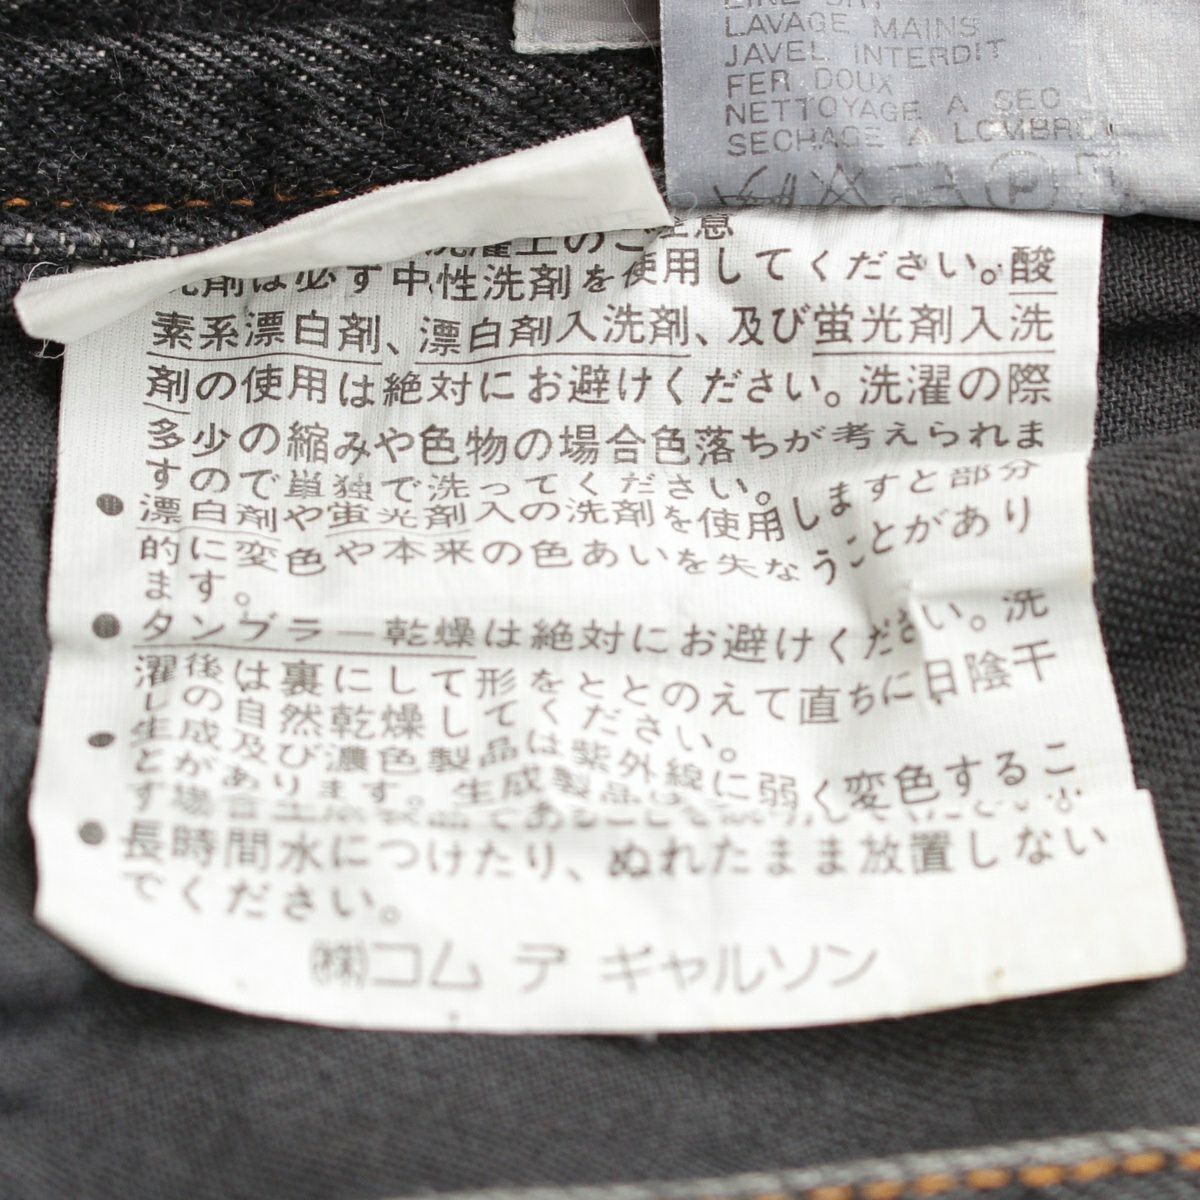 LAVAGE MAINS
JAVEL INTERDIT
FER DOUX
NETTOYAGE A SEC
SECHAGE A LOMBRE
洗濯上のご注意
洗剤は必ず中性洗剤を使用してください。酸
素系漂白剤、漂白剤入洗剤、及び蛍光剤入洗
剤の使用は絶対にお避けください。洗濯の際
多少の縮みや色物の場合色落ちが考えられま
すので単独で洗ってください。
●漂白剤や蛍光剤入の洗剤を使用しますと部分
的に変色や本来の色あいを失なうことがあり
ます。
●タンブラー乾燥は絶対にお避けください。洗
濯後は裏にして形をととのえて直ちに日陰干
しの自然乾燥してください。
●生成及び濃色製品は紫外線に弱く変色するこ
とがあります。生成製品は
す場合
●長時間水につけたり、ぬれたまま放置しない
でください。
㈱コム デ ギャルソン